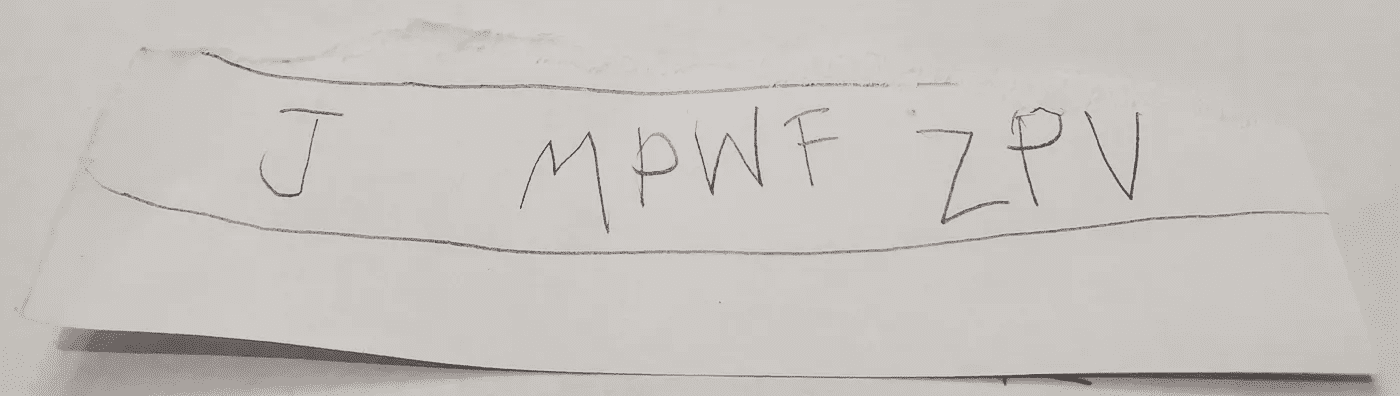 J MPWF ZPV